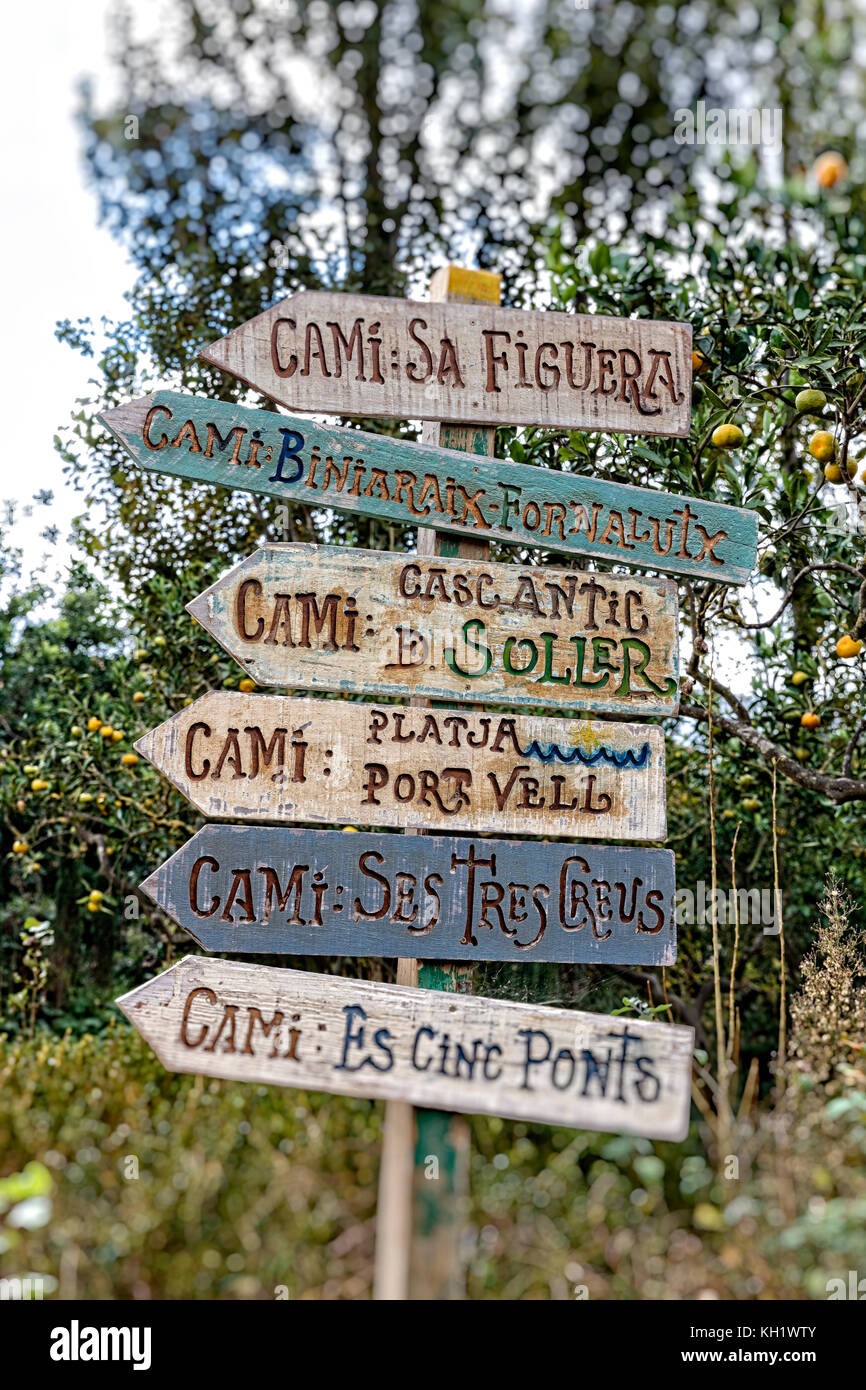 CAMÍ: SA FIGUERA
CAMÍ: BINIARAIX-FORNALUTX
CASC ANTIC
CAMÍ: D. SOLLER
PLATJA
CAMÍ: PORT VELL
CAMÍ: SES TRES CREUS
CAMÍ: ES CINC PONTS
alamy
a
a
alamy stock photo
KH1WTY
www.alamy.com